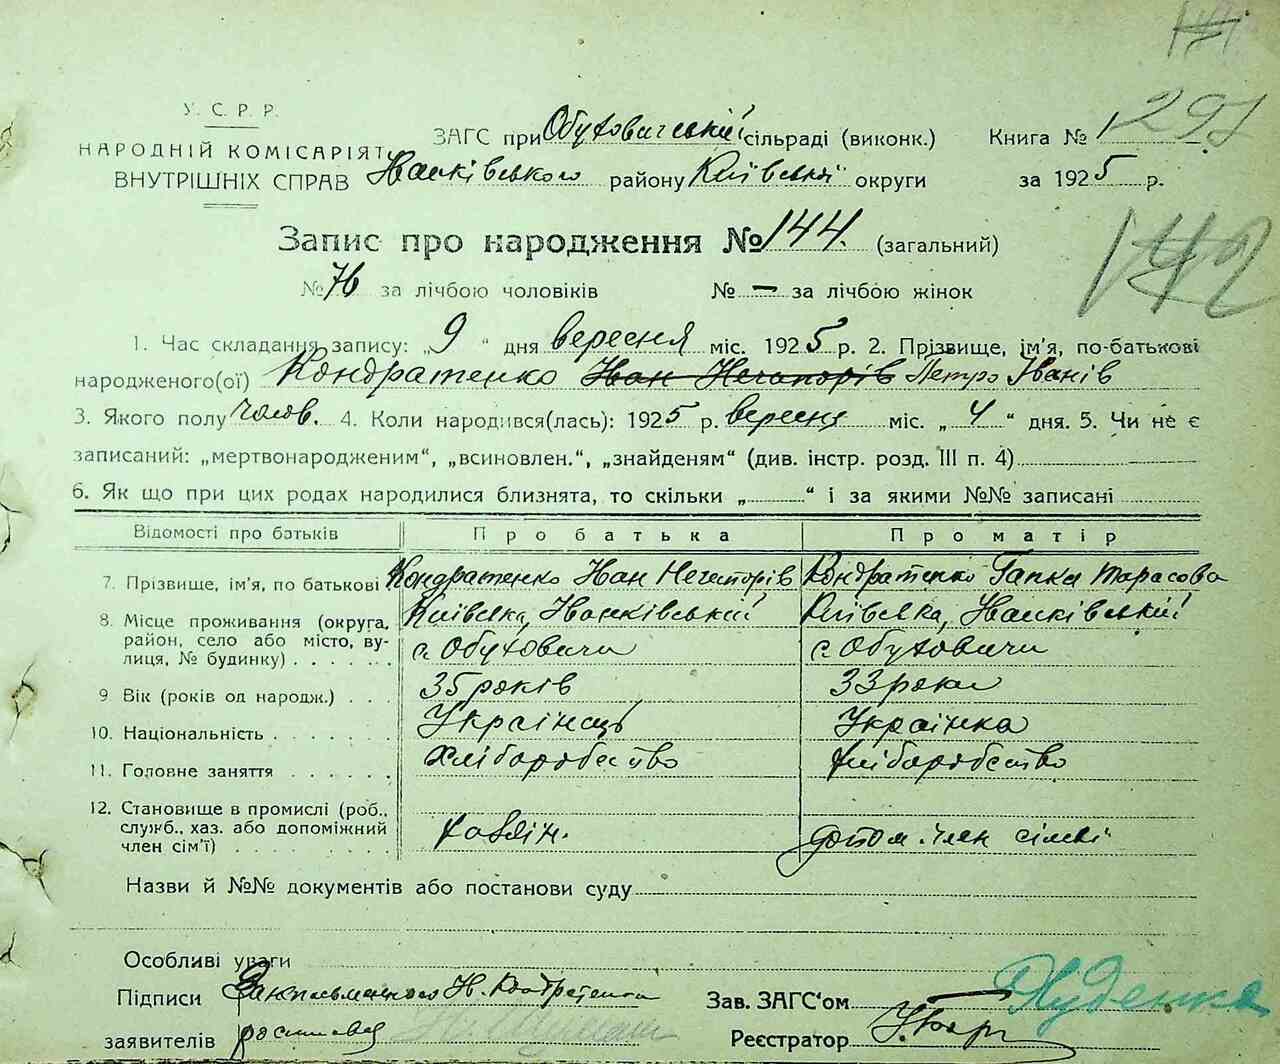 У. С. Р. Р.
НАРОДНІЙ КОМІСАРІЯТ
ВНУТРІШНІХ СПРАВ
ЗАГС при Обуховичській сільраді (виконк.) Книга № 1
297
Іванківського району Київської округи за 1925 р.
Запис про народження № 144. (загальний)
142
№ 76 за лічбою чоловіків № — за лічбою жінок
1. Час складання запису: „9“ дня вересня міс. 1925 р. 2. Прізвище, ім'я, по-батькові
народженого(ої) Кондратенко Іван Нечипорів Петро Іванів
3. Якого полу чолов. 4. Коли народився(лась): 1925 р. вересня міс. „4“ дня. 5. Чи не є
записаний: „мертвонародженим“, „всиновлен.“, „знайденям“ (див. інстр. розд. III п. 4)
6. Як що при цих родах народилися близнята, то скільки „ “ і за якими №№ записані
Відомості про батьків Про батька Про матір
7. Прізвище, ім'я, по батькові Кондратенко Іван Нечипорів Кондратенко Гапка Тарасова
8. Місце проживання (округа, Київська, Іванківський Київська, Іванківський
район, село або місто, ву- с. Обуховичи с. Обуховичи
лиця, № будинку)
9 Вік (років од народж.) 35 років 33 роки
10. Національність Українець Українка
11. Головне заняття Хліборобство хліборобство
12. Становище в промислі (роб.,
служб., хаз. або допоміжний хазяін. допом. член сімві
член сім'ї)
Назви й №№ документів або постанови суду
Особливі уваги
Підписи За неписьменного Н. Кондратенка Зав. ЗАГС'ом
заявителів росписався Реєстратор